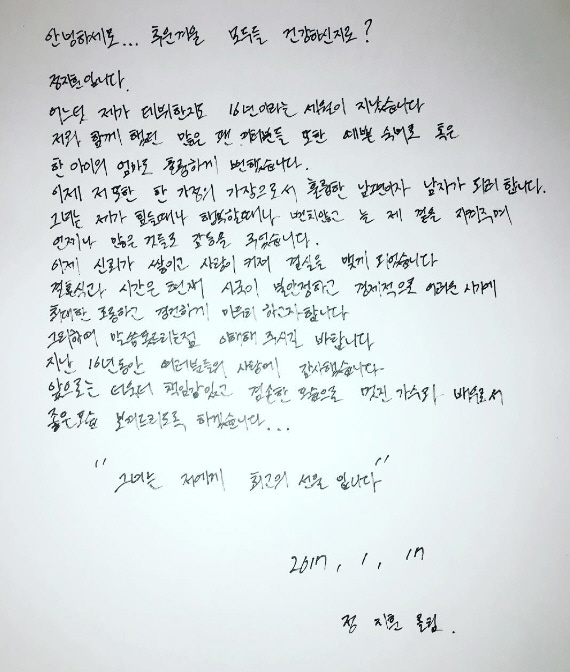 안녕하세요... 추운겨울 모두들 건강하신지요?
정지훈입니다.
어느덧 제가 데뷔한지도 16년이라는 세월이 지났습니다
저와 함께 했던 많은 팬 여러분들 또한 예쁜 숙녀로 혹은
한 아이의 엄마로 훌륭하게 변했습니다.
이제 저또한 한 가정의 가장으로서 훌륭한 남편이자 남자가 되려 합니다.
그녀는 제가 힘들때나 행복할때나 변치않고 늘 제 곁을 지켜주며
언제나 많은 것들로 감동을 주었습니다.
이제 신뢰가 쌓이고 사랑이 커져 결실을 맺게 되었습니다
결혼식과 시간은 현재 시국이 불안정하고 경제적으로 어려운 시기에
최대한 조용하고 경건하게 마무리 하고자합니다
그리하여 말씀못드리는점 이해해 주시길 바랍니다
지난 16년동안 여러분들의 사랑에 감사했습니다
앞으로는 더욱더 책임감있고 겸손한 모습으로 멋진 가수와 배우로서
좋은모습 보여드리도록 하겠습니다...
"그녀는 저에게 최고의 선물 입니다"
2017, 1, 17
정 지훈 올림.